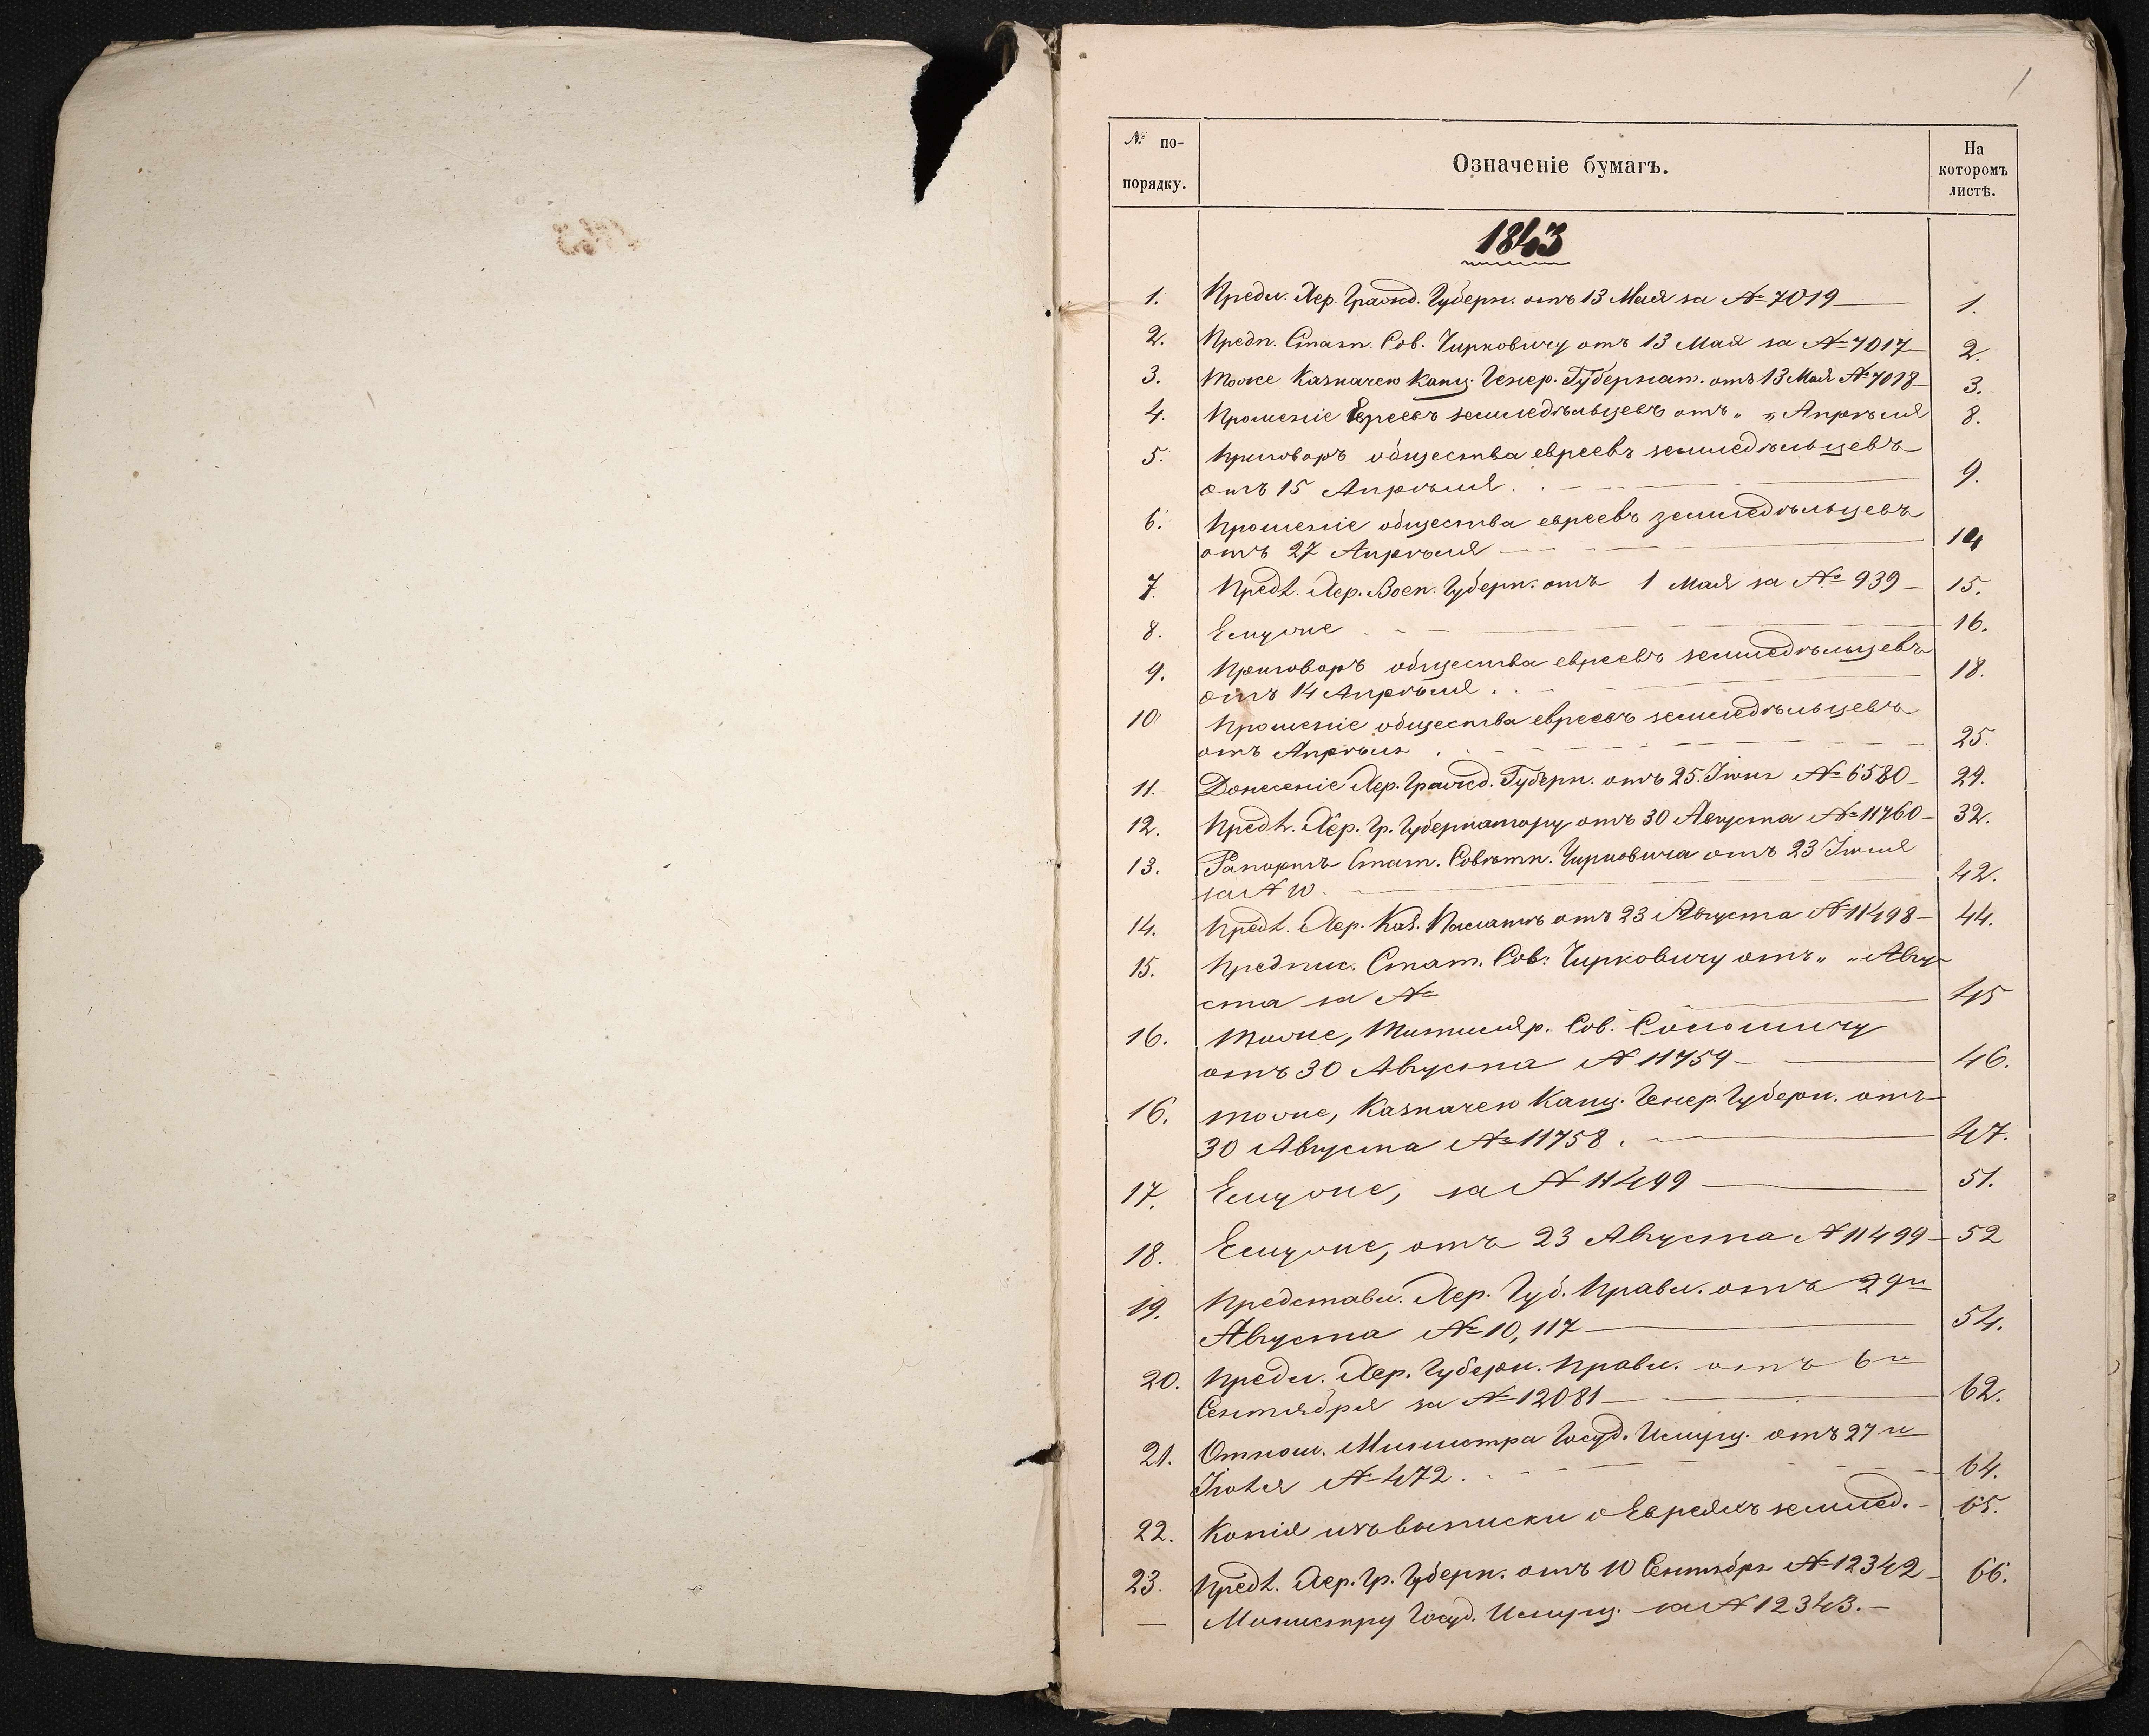 1
№ по-
порядку.
Означеніе бумагъ.
На
которомъ
листѣ.
1843
1. Предл. Хер. Гражд. Губерн. отъ 13 Мая за № 7019 1.
2. Предп. Стат. Сов. Чирковичу отъ 13 Мая за № 7017 2.
3. тоже Казначею Канц. Генер. Губернат. отъ 13 Мая № 7018 3.
4. Прошеніе Евреевъ земледѣльцевъ отъ „ „ Апрѣля 8.
5. Приговоръ общества евреевъ земледѣльцевъ
отъ 15 Апрѣля. 9.
6. Прошеніе общества евреевъ земледѣльцевъ
отъ 27 Апрѣля 14
7. Предл. Хер. Воен. Губерн. отъ 1 Мая за № 939 15.
8. Емуже 16.
9. Приговоръ общества евреевъ земледѣльцевъ
отъ 14 Апрѣля. 18.
10 Прошеніе общества евреевъ земледѣльцевъ
отъ Апрѣля 25.
11. Донесеніе Хер. Гражд. Губерн. отъ 25 Іюня № 6580 29.
12. Предл. Хер. Гр. Губернатору отъ 30 Августа № 11760 32.
13. Рапортъ Стат. Совѣтн. Чирковича отъ 23 Іюля
за № 10. 42.
14. Предл. Хер. Каз. Палатѣ отъ 23 Августа № 11498 44.
15. Предпис. Стат. Сов: Чирковичу отъ „ „ Авгу-
ста за № 45
16. тоже, Титуляр. Сов.
отъ 30 Августа № 11759 46.
16. тоже, Казначею Канц. Генер. Губерн. отъ
30 Августа № 11758. 47.
17. Емуже, за № 11499 51.
18. Емуже, отъ 23 Августа № 11499 52
19. Представл. Хер. Губ. Правл. отъ 29го
Августа № 10,117 54.
20. Предл. Хер. Губерн. Правл. отъ 6го
Сентября за № 12081 62.
21. Отнош. Министра Госуд. Имущ. отъ 27го
Іюля № 472. 64.
22. Копія изъ выписки о Евреяхъ землед. 65.
23. Предл. Хер. Гр. Губерн. отъ 10 Сентября № 12342 66.
— Министру Госуд. Имущ. за № 12343.